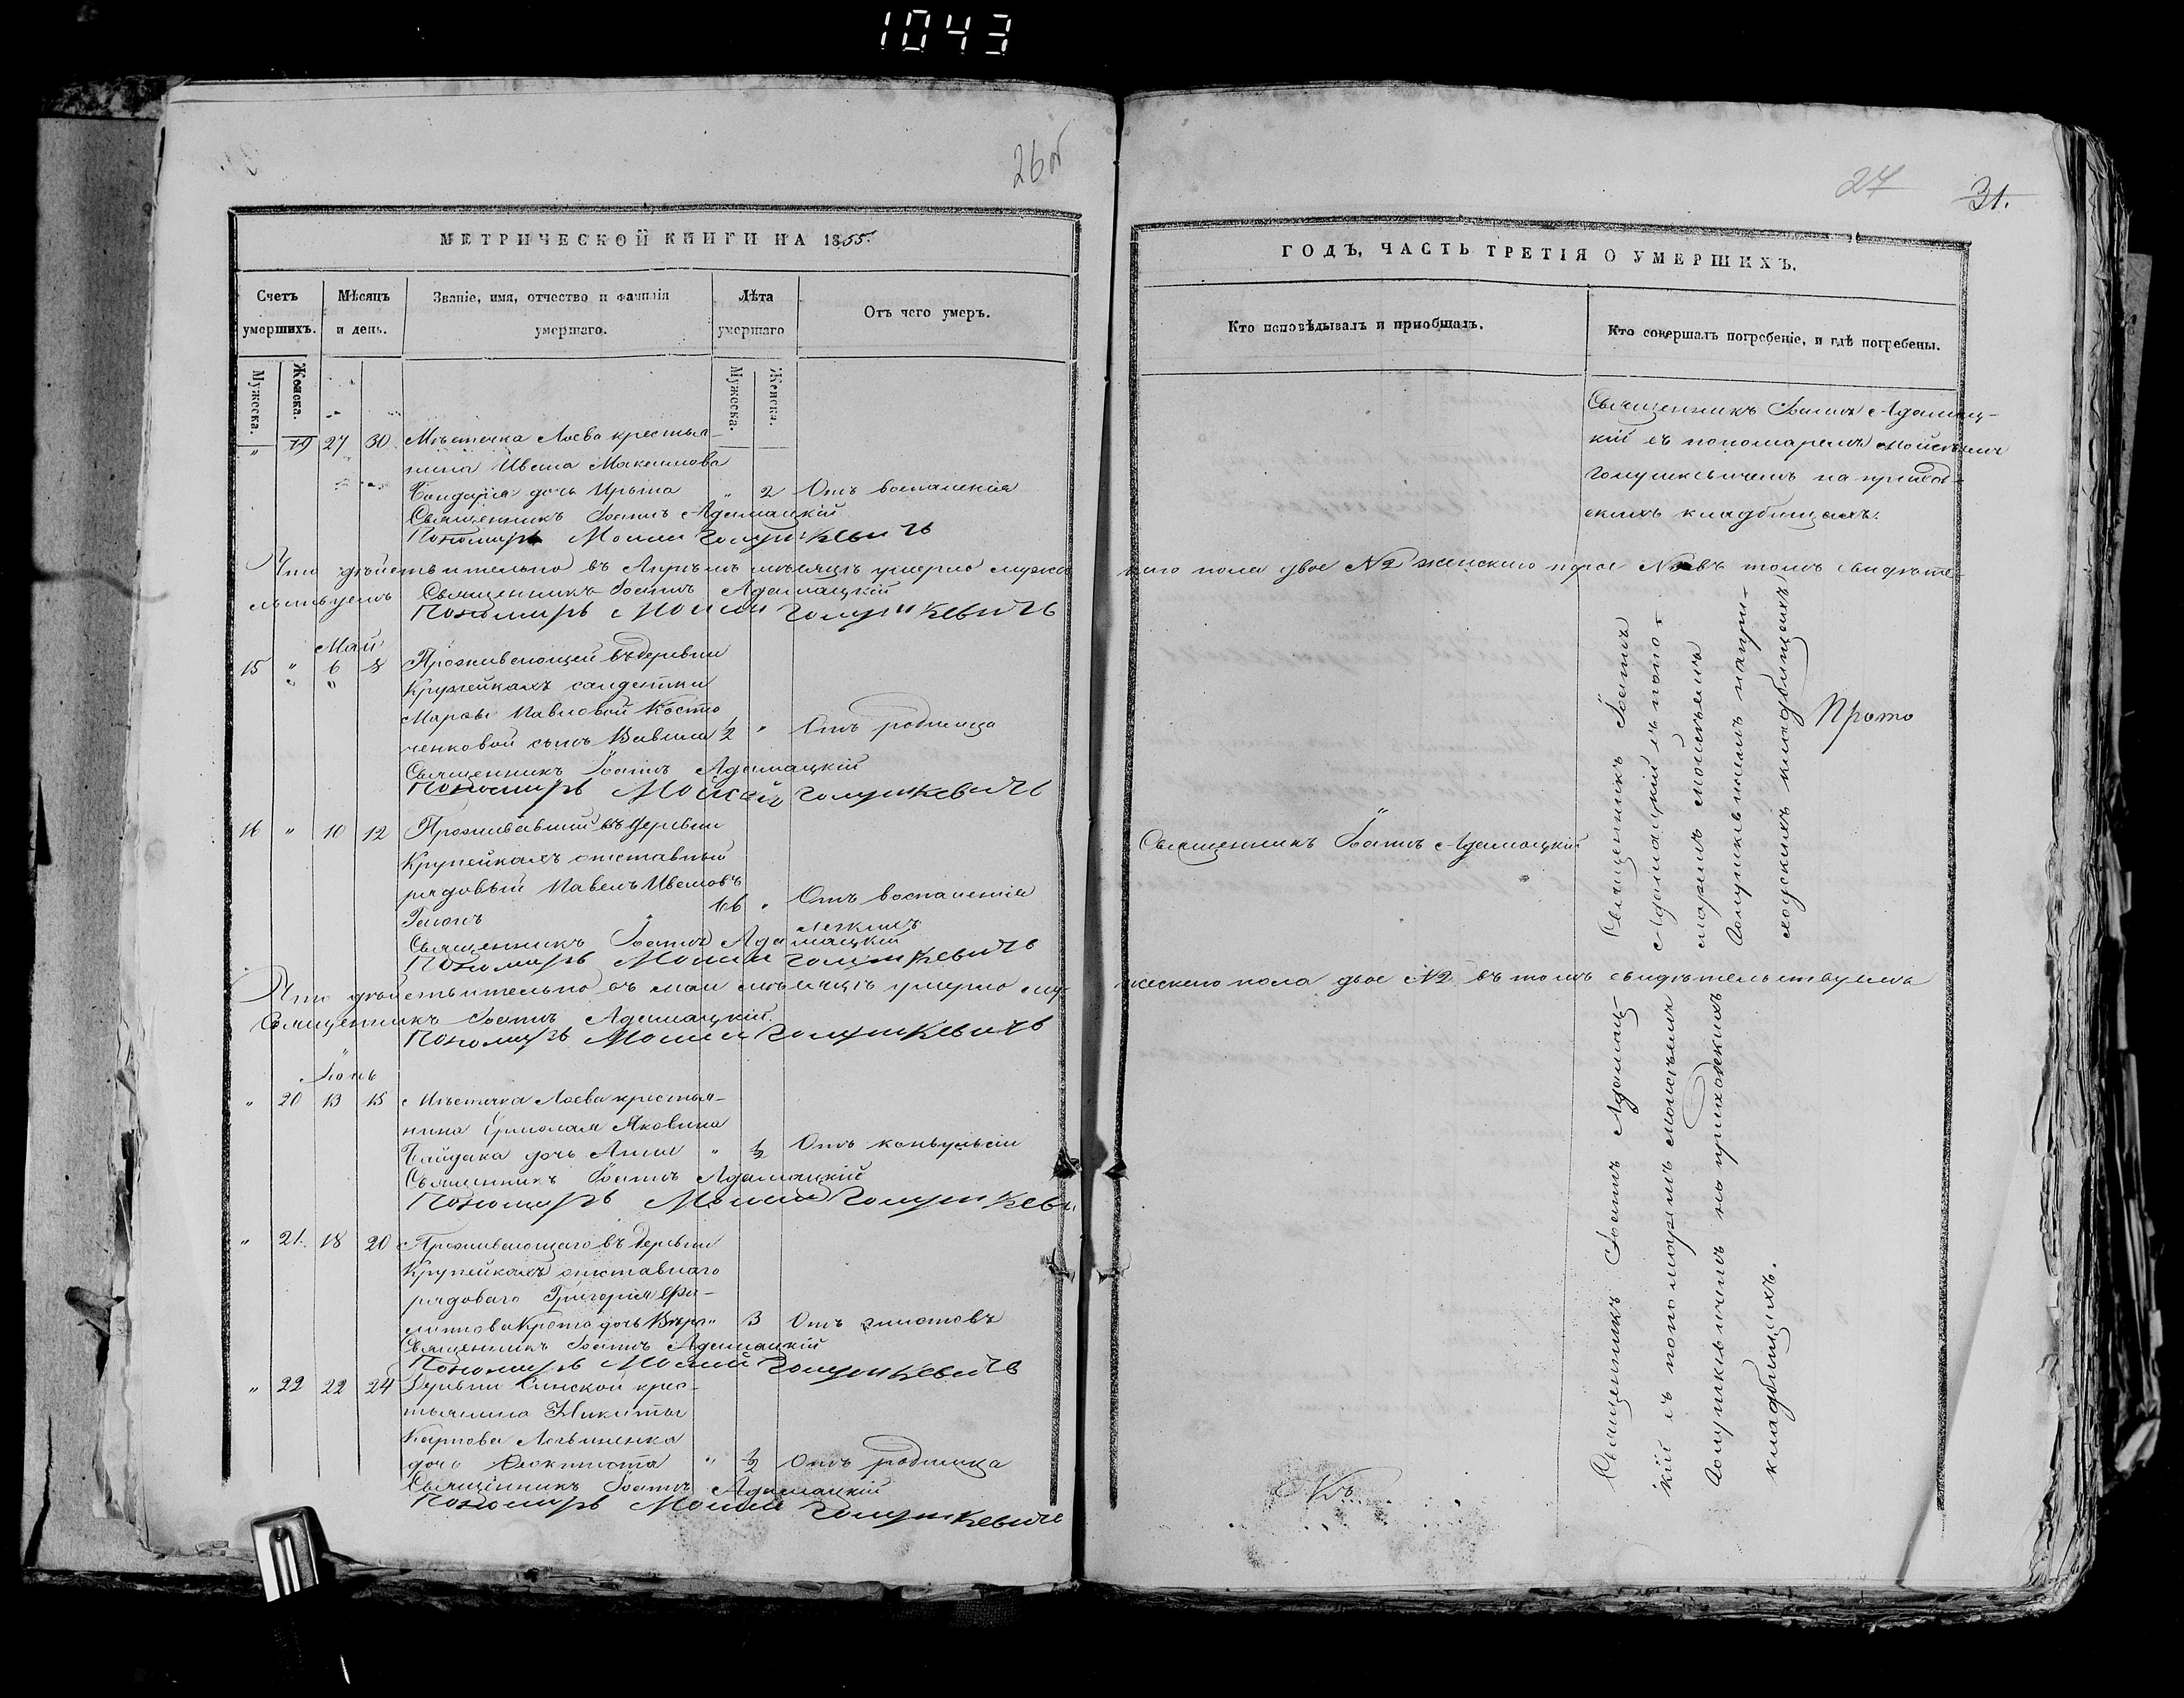 1043
26об
27
31.
МЕТРИЧЕСКОЙ КНИГИ НА 1855.
ГОДЪ, ЧАСТЬ ТРЕТІЯ О УМЕРШИХЪ.
Счетъ умершихъ.
Мѣсяцъ и день.
Званіе, имя, отчество и фамилія умершаго.
Лѣта умершаго
Отъ чего умеръ.
Кто исповѣдывалъ и приобщалъ.
Кто совершалъ погребеніе, и гдѣ погребены.
Мужеска. Женска.
Мужеска. Женска.
" 19 27 30 Мѣстечка Лоева крестья-
нина Ивана Максимова
Бондаря дочь Ирина " 2 Отъ воспаленія
Священникъ Іоаннъ Адамацкій
Пономарь Моисей Голушкевичъ
Священникъ Іоаннъ Адамац-
кій съ пономаремъ Моисѣемъ
Голушкевичемъ на приход-
скихъ кладбищахъ.
Что дѣйствительно въ Апрѣлѣ мѣсяцѣ умерло мужес
каго пола двое №2 женскаго пола въ томъ свидѣте-
льствуемъ Священникъ Іоаннъ Адамацкій
Пономарь Моисей Голушкевичъ
Май
15 " 6 8 Проживающей въ деревни
Крупейкахъ солдатки
Марѳы Павловой Косто
ченковой сынъ Вавила 1/2 " Отъ родимца
Священникъ Іоаннъ Адамацкій
Пономарь Моисей Голушкевичъ
16 " 10 12 Проживавшій въ деревни
Крупейкахъ отставный
рядовый Павелъ Ивановъ
66 " Отъ воспаленія
легкихъ
Священникъ Іоаннъ Адамацкій
Пономарь Моисей Голушкевичъ
Священникъ Іоаннъ Адамацкій
Священникъ Іоаннъ
Адамацкій съ поно-
маремъ Моисѣемъ
Голушкевичемъ на при-
ходскихъ кладбищахъ
Прото
Что дѣйствительно въ маи мѣсяцѣ умерло му-
жескаго пола двое №2 въ томъ свидѣтельствуемъ
Священникъ Іоаннъ Адамацкій.
Пономарь Моисей Голушкевичъ
Іюнь
" 20 13 15 Мѣстечка Лоева крестья-
нина Ермолая Яковлева
Байдака дочь Анна " 1/2 Отъ конвульсіи
Священникъ Іоаннъ Адамацкій
Пономарь Моисей Голушкеви
" 21. 18 20 Проживающаго въ деревни
Крупейкахъ отставнаго
рядоваго Григорія Фи-
липпова Крота дочь Вѣра " 3 Отъ глистовъ
Священникъ Іоаннъ Адамацкій
Пономарь Моисей Голушкевичъ
" 22 22 24 Деревни Синской крес-
тьянина Никиты
Карпова Логвиненка
дочь Феоктиста " 1/2 Отъ родимца
Священникъ Іоаннъ Адамацкій
Пономарь Моисей Голушкевичъ
Священникъ Іоаннъ Адамац-
кій съ пономаремъ Моисѣемъ
Голушкевичемъ на приходскихъ
кладбищахъ.